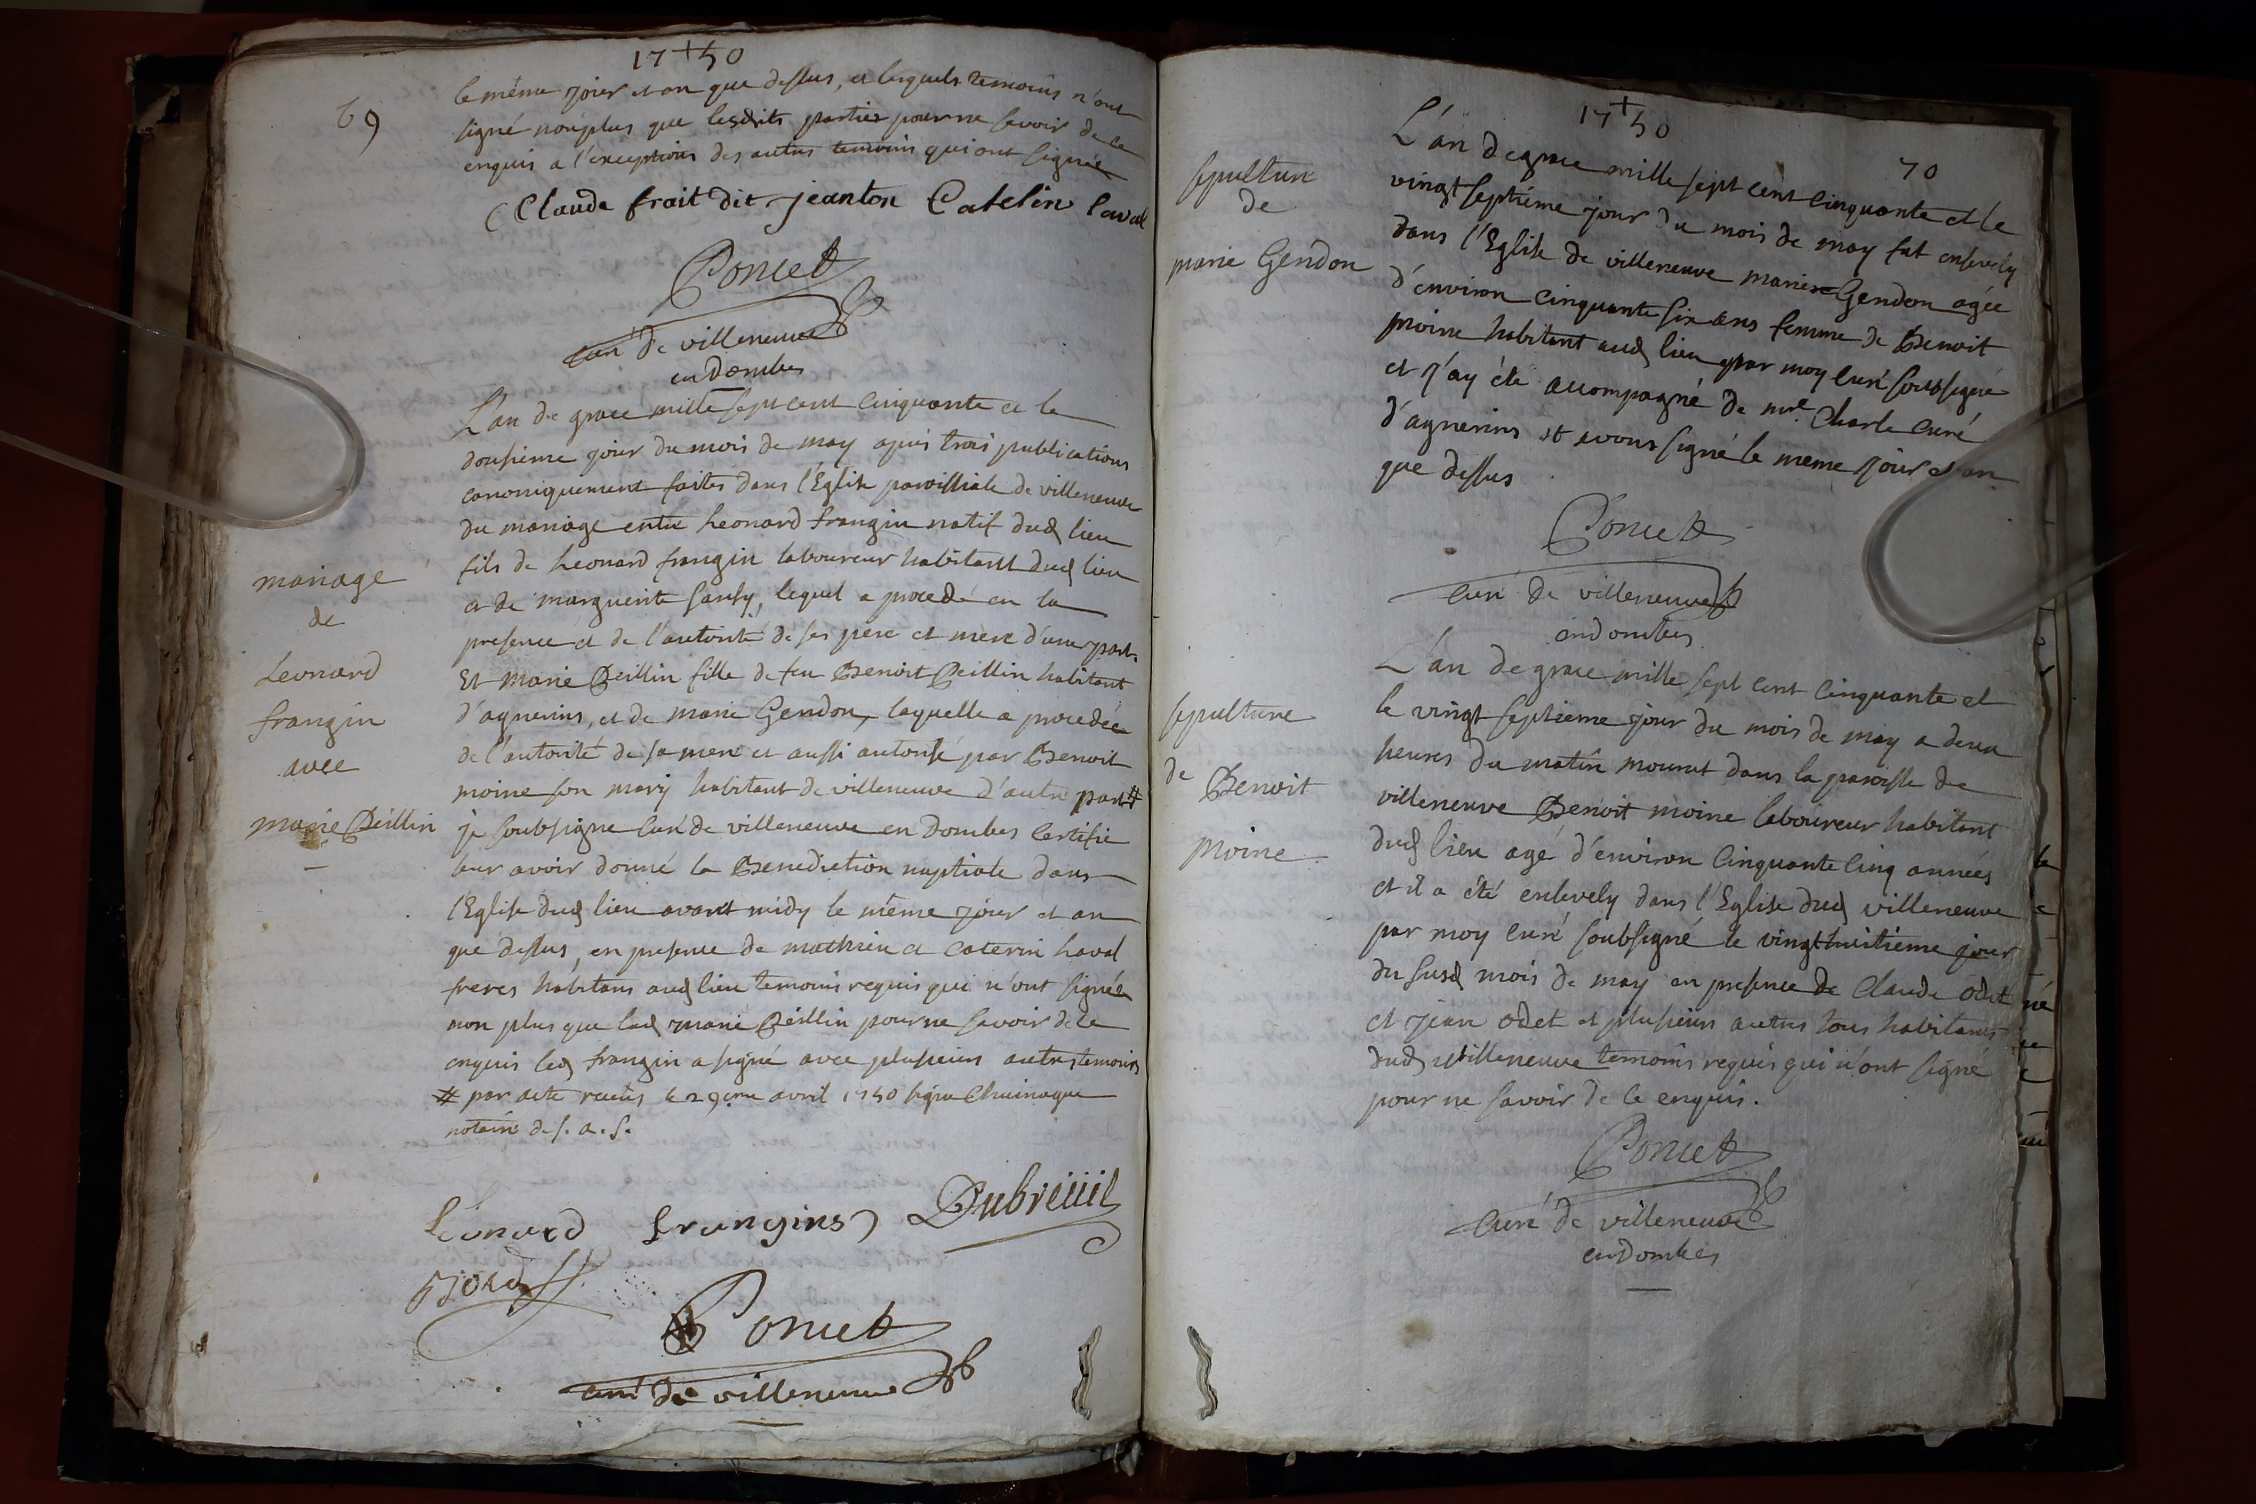 17+50
69
le même jour et an que dessus, et lesquels temoins n'ont
signé nonplus que lesdits parties pour ne savoir de ce
enquis a l'exception des autres temoins qui ont signés
Claude frait dit jeanton Catelin Laval
Poncet
curé de villeneuve
en dombes
L'an de grace mille sept cent cinquante et le
dousieme jour du mois de may apres trois publications
canoniquement faites dans l'Eglise paroissiale de villeneuve
du mariage entre Leonard frangin natif dud lieu
fils de Leonard frangin laboureur habitant dud lieu
et de marguerite sansy, lequel a procedé en la
presence et de l'autorité de ses pere et mere d'une part
Et marie Peillin fille de feu Benoit Peillin habitant
d'agnerins, et de marie Gendon, laquelle a procedée
de l'autorité de sa mere et aussi autorisé par Benoit
moine son mary habitant de villeneuve d'autre part #
je soubsigne curé de villeneuve en Dombes certifie
leur avoir donné la Benediction nuptiale dans
l'Eglise dud lieu avant midy le même jour et an
que dessus, en presence de mathieu et Caterin Laval
freres habitans aud lieu temoins requis qui n'ont signés
non plus que lad marie Peillin pour ne savoir de ce
enquis led frangin a signé avec plusieurs autres temoins
# par acte receus le 29eme avril 1750 signé Chuinague
notaire de s. a. s.
mariage
de
Leonard
frangin
avec
marie Peillin
Léonard frangins Dubreüil
Poncet
curé de villeneuve
17+50
70
sepulture
de
marie Gendon
L'an de grace mille sept cent cinquante et le
vingt septiéme jour du mois de may fut ensevely
dans l'Eglise de villeneuve marie Gendon agée
d'environ cinquante six ans femme de Benoit
moine habitant aud lieu par moy curé soubsigné
et j'ay été accompagné de mre Charle curé
d'agnerins et avons signé le meme jour et an
que dessus
Poncet
curé de villeneuve
en dombes
sepulture
de Benoit
moine
L'an de grace mille sept cent cinquante et
le vingt septieme jour du mois de may a deux
heures du matin mourut dans la paroisse de
villeneuve Benoit moine laboureur habitant
dud lieu agé d'environ cinquante cinq années
et il a été ensevely dans l'Eglise dud villeneuve
par moy curé soubsigné le vingt huitieme jour
du susd mois de may en presence de Claude odet
et jean odet et plusieurs autres tous habitans
dud villeneuve temoins requis qui n'ont signé
pour ne savoir de ce enquis.
Poncet
curé de villeneuve
en Dombes